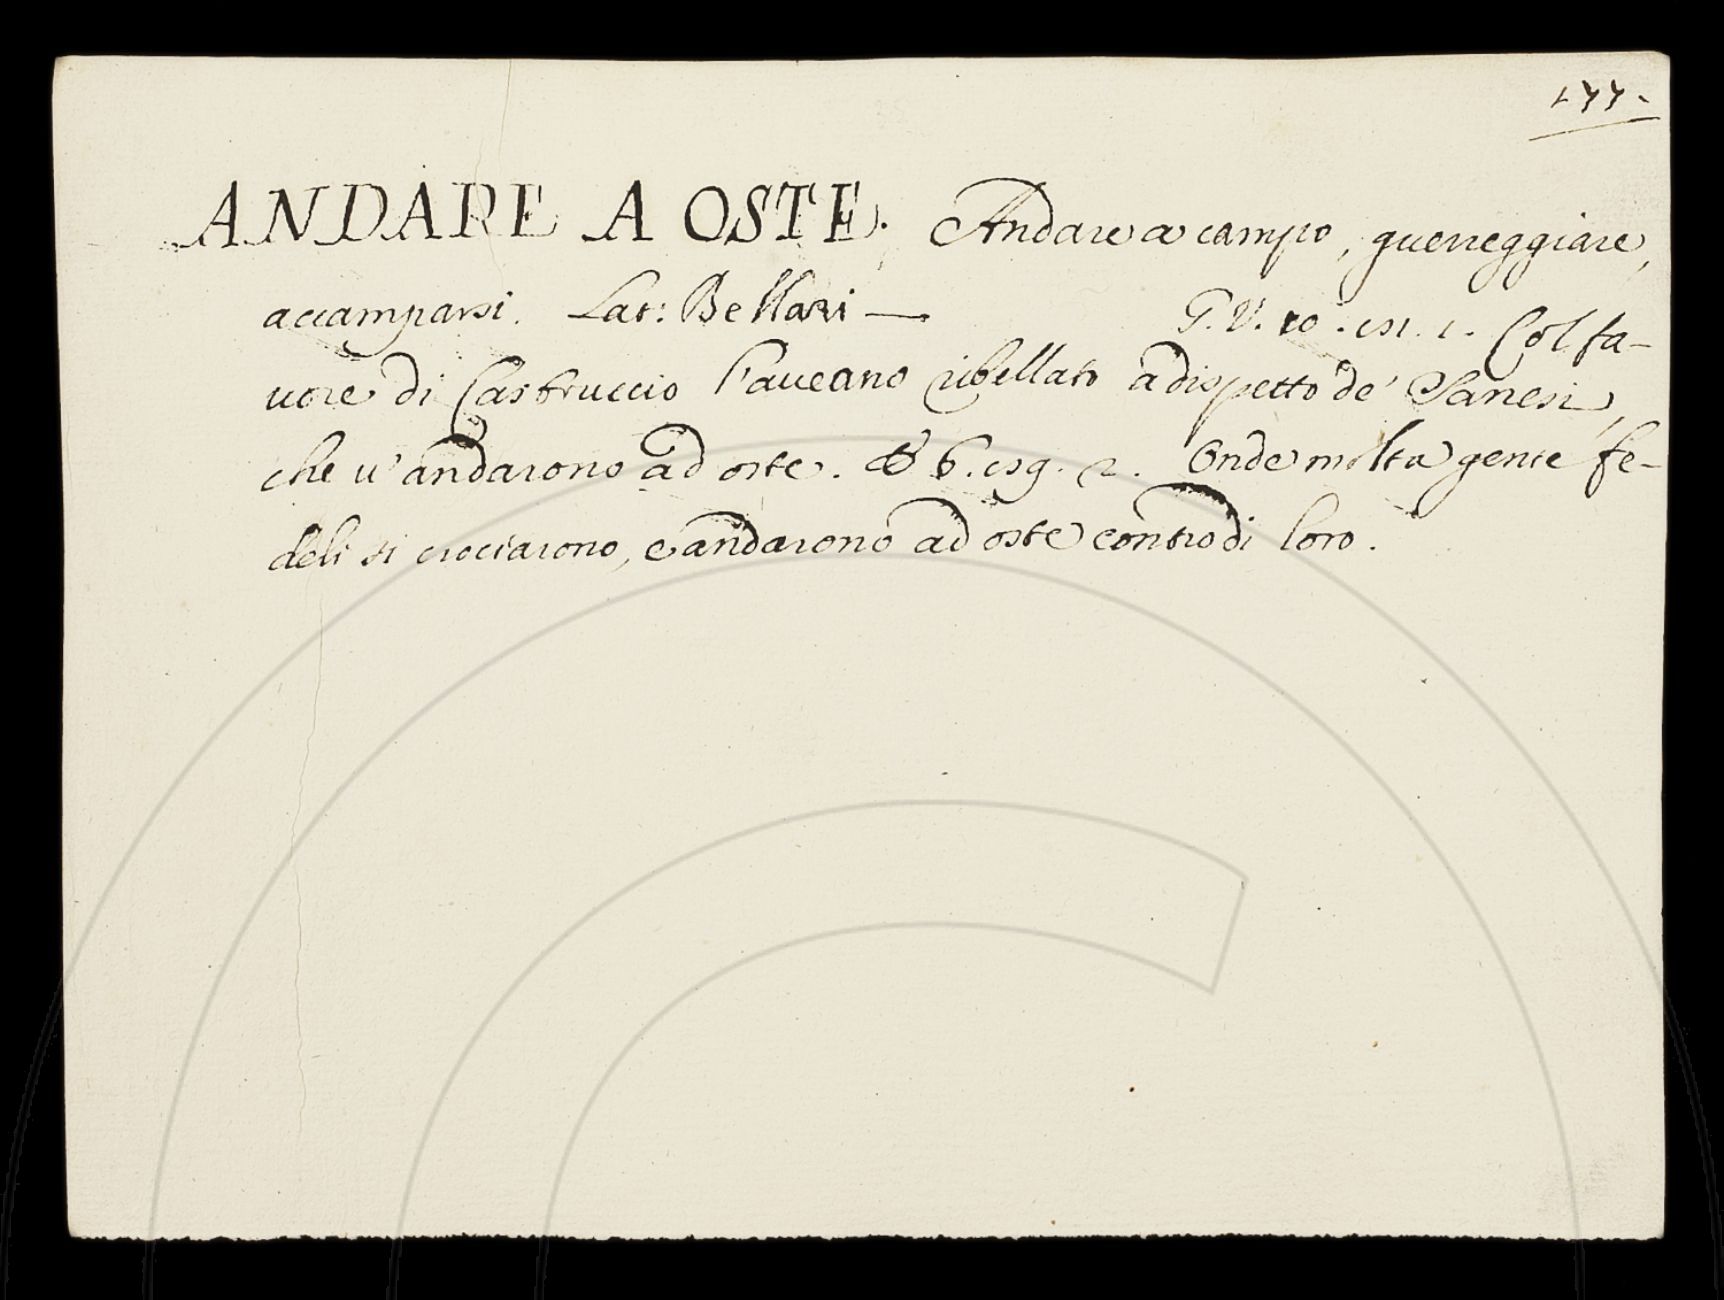 177.
ANDARE A OSTE. Andare a campo, guerreggiare,
accamparsi. Lat: Bellari — G. V. 10. 151. 1. Col fa-
uore di Castruccio l'aueano ribellato a dispetto de' Sanesi,
che u' andarono ad oste. & 6. 2. Onde molta gente fe-
deli si crociarono, e andarono ad oste contro di loro.